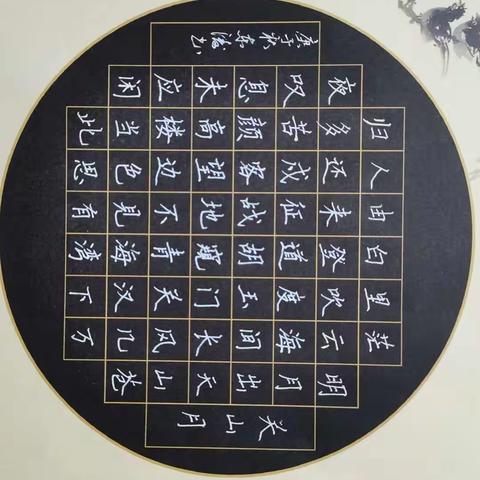 关山月
明月出天山苍
茫云海间长风几万
里吹度玉门关汉下
白登道胡窥青海湾
由来征战地不见有
人还戍客望边色思
归多苦颜高楼当此
夜叹息未应闲
庚子秋东书